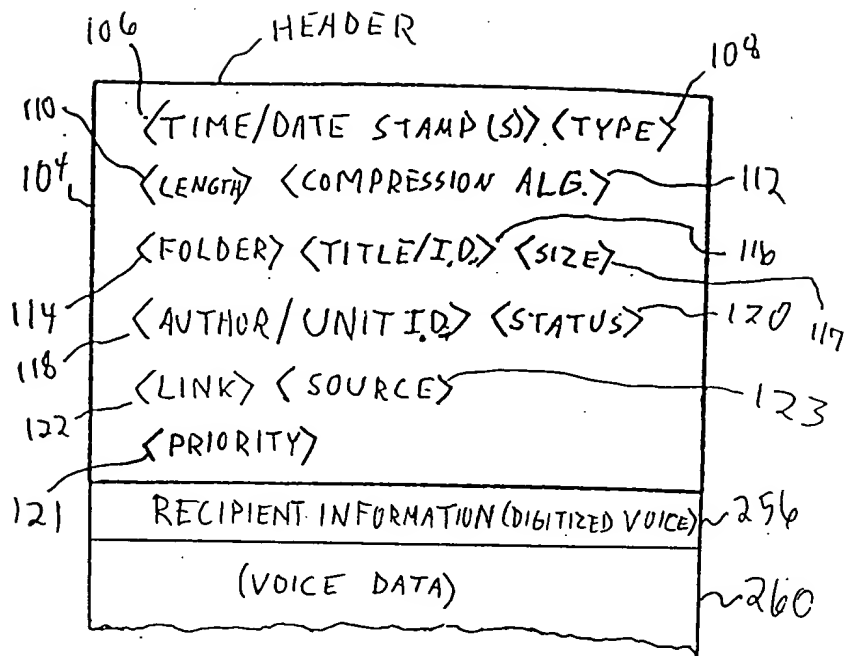 106 HEADER 108
<TIME/DATE STAMP(S)> <TYPE>
110
104 <LENGTH> <COMPRESSION ALG.> 112
<FOLDER> <TITLE/I.D.> <SIZE> 116
114 <AUTHOR/UNIT I.D.> <STATUS> 120 117
118
<LINK> <SOURCE> 123
122
<PRIORITY>
121
RECIPIENT INFORMATION (DIGITIZED VOICE) 256
(VOICE DATA) 260